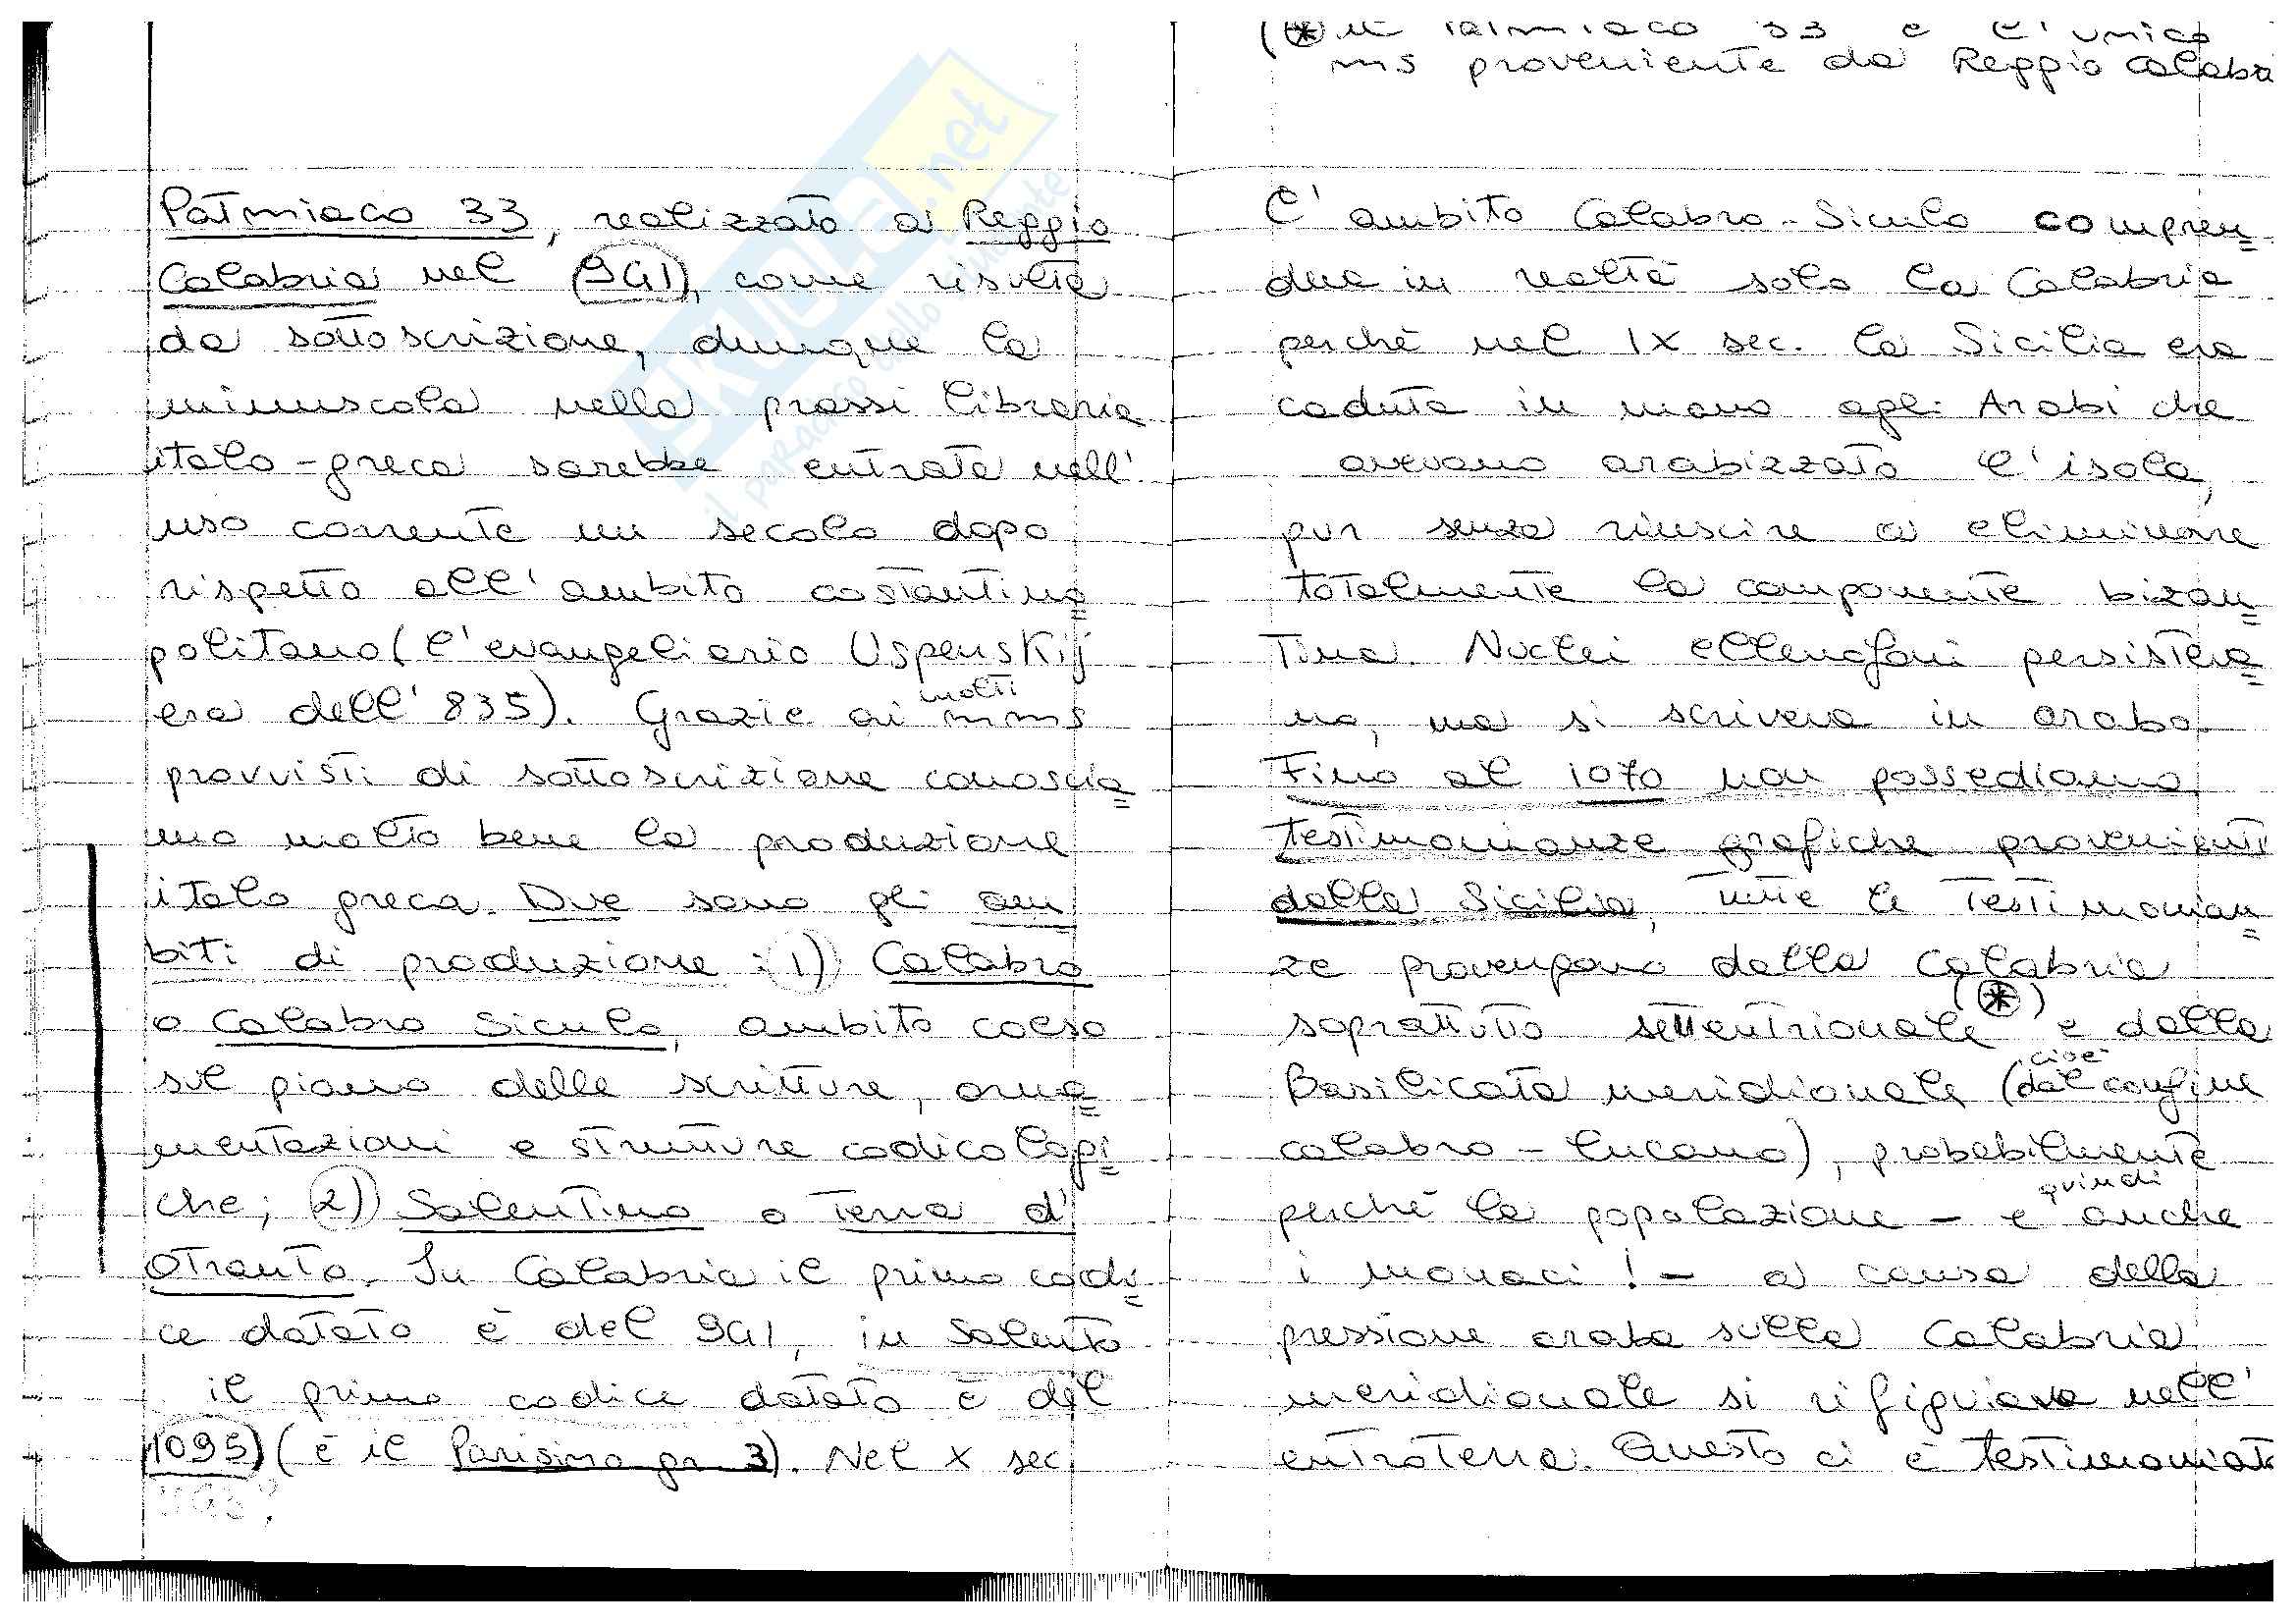 Patmiaco 33, realizzato a Reggio
Calabria nel (941), come risulta
da sottoscrizione, dunque la
minuscola nella prassi libraria
italo-greca sarebbe entrata nell'
uso corrente un secolo dopo
rispetto all'ambito costantino=
politano (l'evangeliario Uspenskij
molti
era dell'835). Grazie ai mms
provvisti di sottoscrizione conoscia=
mo molto bene la produzione
italo greca. Due sono gli am
biti di produzione: 1) Calabro
o Calabro Siculo, ambito coeso
sul piano delle scritture, orna=
mentazioni e strutture codicologi=
che; 2) Salentino o Terra d'
Otranto. In Calabria il primo codi=
ce datato è del 941, in Salento
il primo codice datato è del
1095) (è il Parisino gr. 3). Nel X sec.
(* il Patmiaco 33 è l'unico
ms proveniente da Reggio Calabri
L'ambito Calabro-Siculo compren=
deva in realtà solo la Calabria
perchè nel IX sec. la Sicilia era
caduta in mano agli Arabi che
avevano arabizzato l'isola,
pur senza riuscire a eliminare
totalmente la componente bizan=
tina. Nuclei ellenofoni persisteva=
no, ma si scriveva in arabo.
Fino al 1070 non possediamo
testimonianze grafiche provenienti
dalla Sicilia, tutte le testimonian=
ze provengono dalla Calabria
soprattutto settentrionale (*) e dalla
cioè
Basilicata meridionale (dal confine
calabro-lucano), probabilmente
quindi
perchè la popolazione - e anche
i monaci! - a causa della
pressione araba sulla Calabria
meridionale si rifugiava nell'
entroterra. Questo ci è testimoniat
skuola.net
il paradiso dello studente